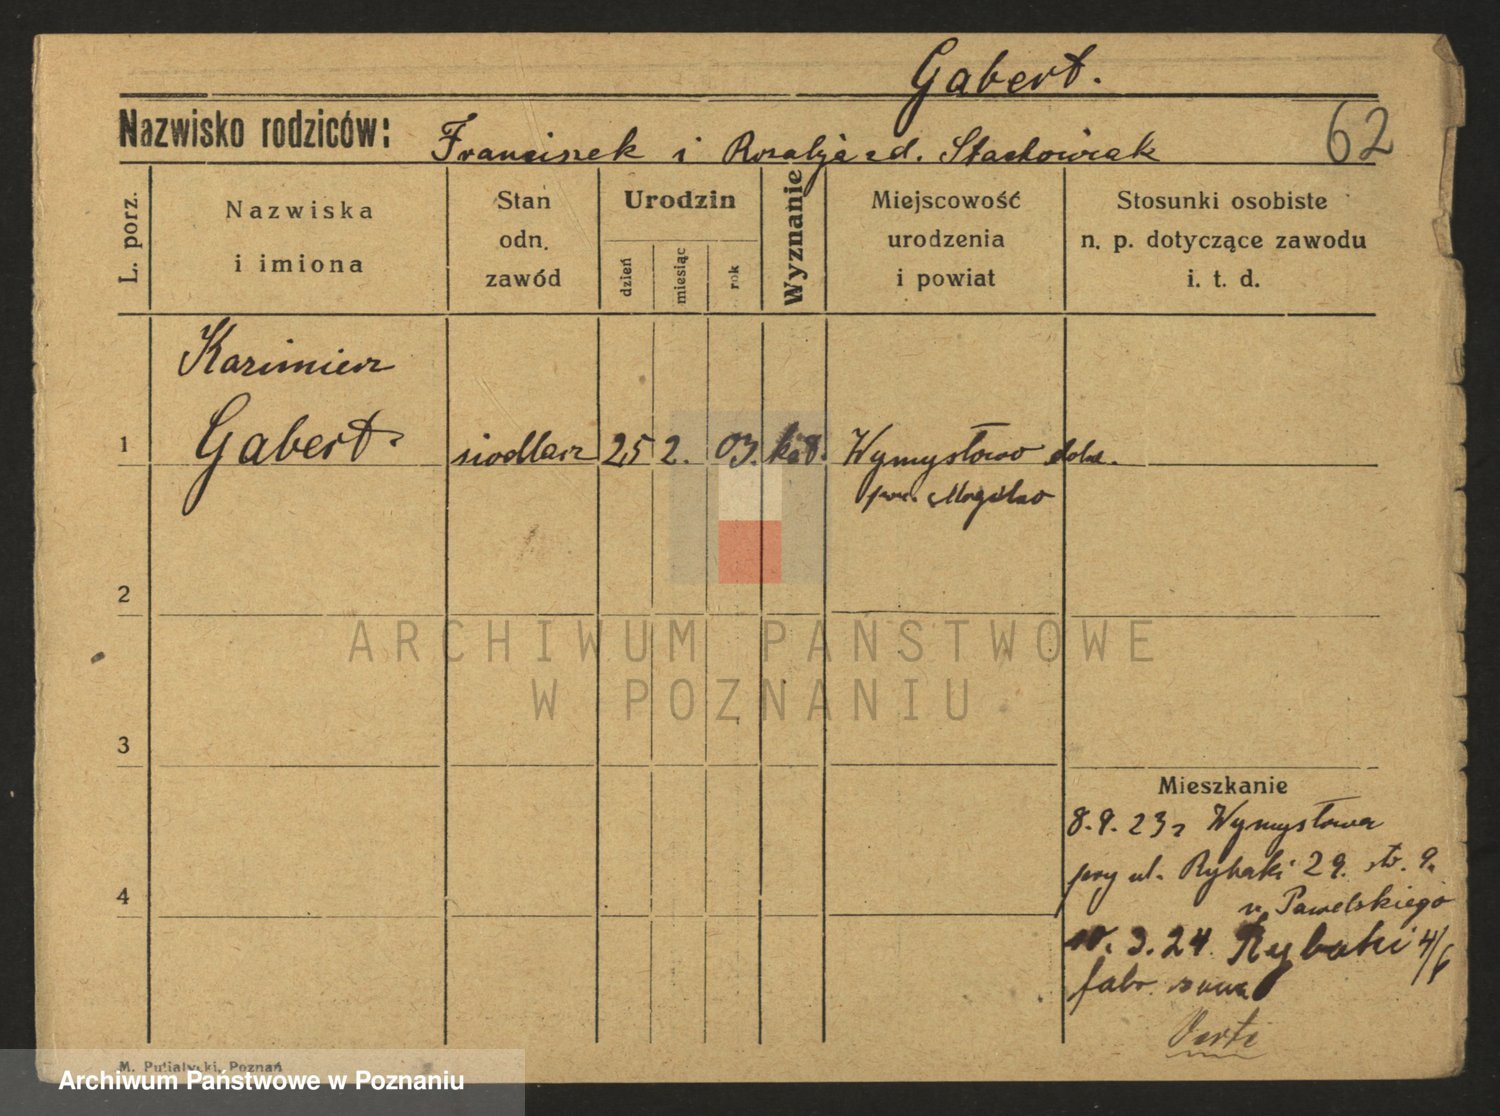 Gabert.
Nazwisko rodziców: Franciszek i Rozalja zd. Stachowiak
62
L. porz.
Nazwiska
i imiona
Stan
odn.
zawód
Urodzin
dzień
miesiąc
rok
Wyznanie
Miejscowość
urodzenia
i powiat
Stosunki osobiste
n. p. dotyczące zawodu
i. t. d.
Kazimierz
1 Gabert siodlarz 25 2. 03. kat. Wymysłowo
pow. Mogilno
2
3
4
Mieszkanie
8.9.23 z Wymysłowa
przy ul. Rybaki 29. 9.
u Pawelskiego
10.3.24. Rybaki 4/6
Verte
ARCHIWUM PAŃSTWOWE
W POZNANIU
M. Putiatycki, Poznań
Archiwum Państwowe w Poznaniu